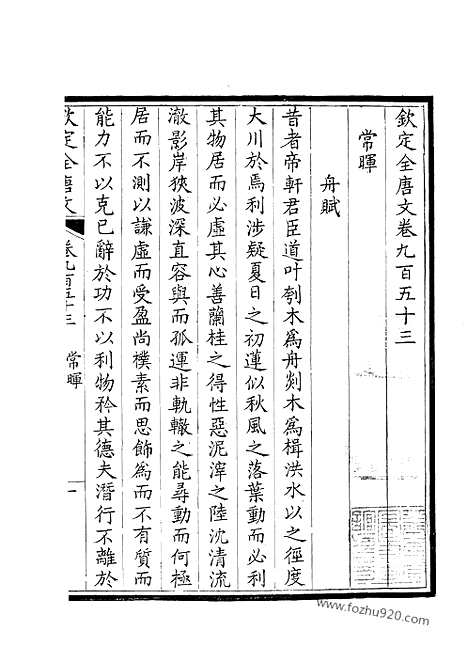 欽定全唐文卷九百五十三
常暉
舟賦
昔者帝軒君臣道叶刳木爲舟剡木爲楫洪水以之徑度
大川於焉利涉疑夏日之初蓮似秋風之落葉動而必利
其物居而必虛其心善蘭桂之得性惡泥滓之陸沈清流
澈影岸狹波深直容與而孤運非軌轍之能尋動而何極
居而不測以謙虛而受盈尚樸素而思飾爲而不有質而
能力不以克已辭於功不以利物矜其德夫潛行不離於
欽定全唐文
卷九百五十三
常暉
一
www.fozhu920.com